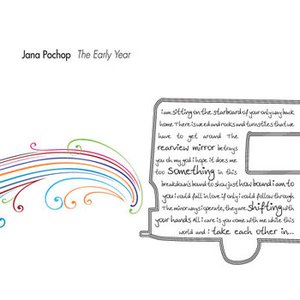 Jana Pochop The Early Year
i am sitting on the starboard of your only way back
home There is weed and rocks and turnstiles that we
have to get around The
rearview mirror betrays
you oh my god i hope it does me
too Something in this
breakdown's bound to show just how bound i am to
you i could fall in love if only i could follow through
The mirror ways i operate, they are shifting with
your hands all i care is you come with me while this
world and i take each other in...